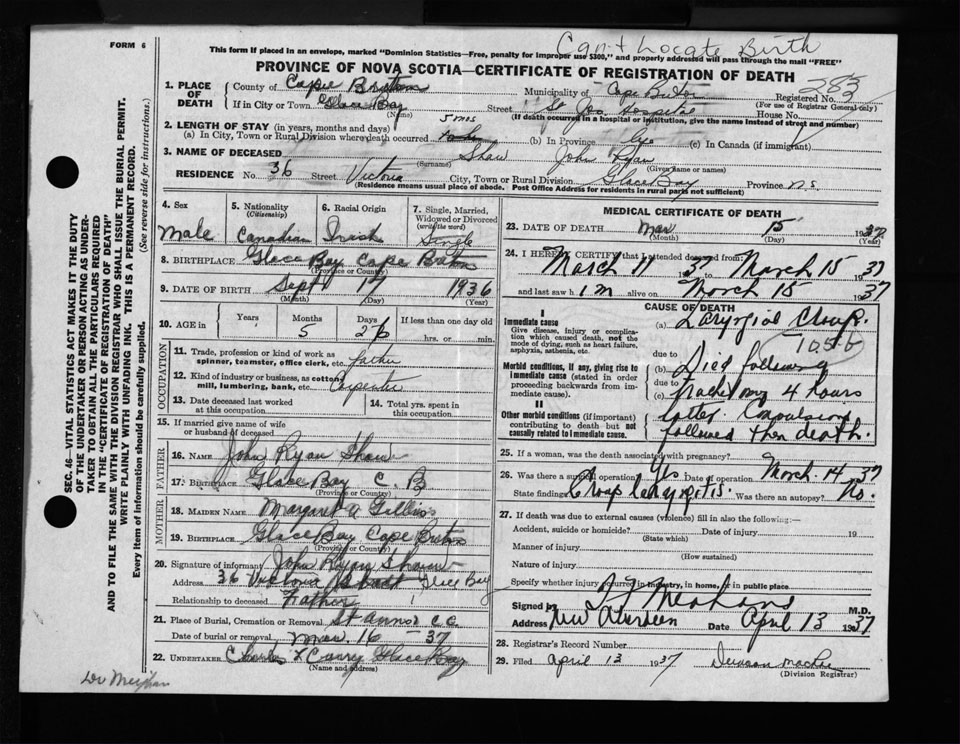 FORM 6
Can't Locate Birth
This form if placed in an envelope, marked "Dominion Statistics—Free, penalty for improper use $300," and properly addressed will pass through the mail "FREE"
PROVINCE OF NOVA SCOTIA—CERTIFICATE OF REGISTRATION OF DEATH
283
1. PLACE OF DEATH County of Cape Breton Municipality of Cape Breton Registered No.
(For use of Registrar General only)
If in City or Town Glace Bay Street St Jos. Hospital House No.
(Name) (If death occurred in a hospital or institution, give the name instead of street and number)
2. LENGTH OF STAY (in years, months and days) 5 mos
(a) In City, Town or Rural Division where death occurred (b) In Province (c) In Canada (if immigrant)
3. NAME OF DECEASED Shaw John Ryan
(Surname) (Given name or names)
RESIDENCE No. 36 Street Victoria City, Town or Rural Division Glace Bay Province N.S.
(Residence means usual place of abode. Post Office Address for residents in rural parts not sufficient)
4. Sex Male
5. Nationality (Citizenship) Canadian
6. Racial Origin Irish
7. Single, Married, Widowed or Divorced (write the word) Single
8. BIRTHPLACE Glace Bay Cape Breton
(Province or County)
9. DATE OF BIRTH Sept 17 1936
(Month) (Day) (Year)
10. AGE in Years Months 5 Days 26 If less than one day old hrs. or min.
OCCUPATION
11. Trade, profession or kind of work as spinner, teamster, office clerk, etc. Father
12. Kind of industry or business, as cotton mill, lumbering, bank, etc. Carpenter
13. Date deceased last worked at this occupation
14. Total yrs. spent in this occupation
15. If married give name of wife or husband of deceased
FATHER
16. NAME John Ryan Shaw
17. BIRTHPLACE Glace Bay C. B
(Province or County)
MOTHER
18. MAIDEN NAME Margaret A Gillis
19. BIRTHPLACE Glace Bay Cape Breton
(Province or County)
20. Signature of informant John Ryan Shaw
Address 36 Victoria Glace Bay
Relationship to deceased Father
21. Place of Burial, Cremation or Removal St Anns
Date of burial or removal Mar 16 - 37
22. UNDERTAKER Glace Bay
(Name and address)
MEDICAL CERTIFICATE OF DEATH
23. DATE OF DEATH Mar 15 1937
(Month) (Day) (Year)
24. I HEREBY CERTIFY that I attended deceased from
March 11 1937 to March 15 1937
and last saw h im alive on March 15 1937
CAUSE OF DEATH
I
Immediate cause
Give disease, injury or complication which caused death, not the mode of dying, such as heart failure, asphyxia, asthenia, etc.
(a) Laryngial Croup.
due to
Morbid conditions, if any, giving rise to immediate cause (stated in order proceeding backwards from immediate cause).
(b) Died following
due to
(c) 4 hours
II
Other morbid conditions (if important) contributing to death but not causally related to immediate cause.
later. Convulsion
followed then death.
25. If a woman, was the death associated with pregnancy?
26. Was there a surgical operation? Yes Date of operation March. 14 1937
State findings Was there an autopsy? No.
27. If death was due to external causes (violence) fill in also the following:—
Accident, suicide or homicide? Date of injury 19
(State which)
Manner of injury
(How sustained)
Nature of injury
Specify whether injury occurred in industry, in home, or in public place
Signed by M.D.
Address New Aberdeen Date April 13 1937
28. Registrar's Record Number
29. Filed April 13 1937
(Division Registrar)
SEC. 46—VITAL STATISTICS ACT MAKES IT THE DUTY
OF THE UNDERTAKER OR PERSON ACTING AS UNDERTAKER TO OBTAIN ALL THE PARTICULARS REQUIRED
IN THE "CERTIFICATE OF REGISTRATION OF DEATH"
AND TO FILE THE SAME WITH THE DIVISION REGISTRAR WHO SHALL ISSUE THE BURIAL PERMIT.
WRITE PLAINLY WITH UNFADING INK. THIS IS A PERMANENT RECORD.
Every item of information should be carefully supplied. (See reverse side for instructions.)